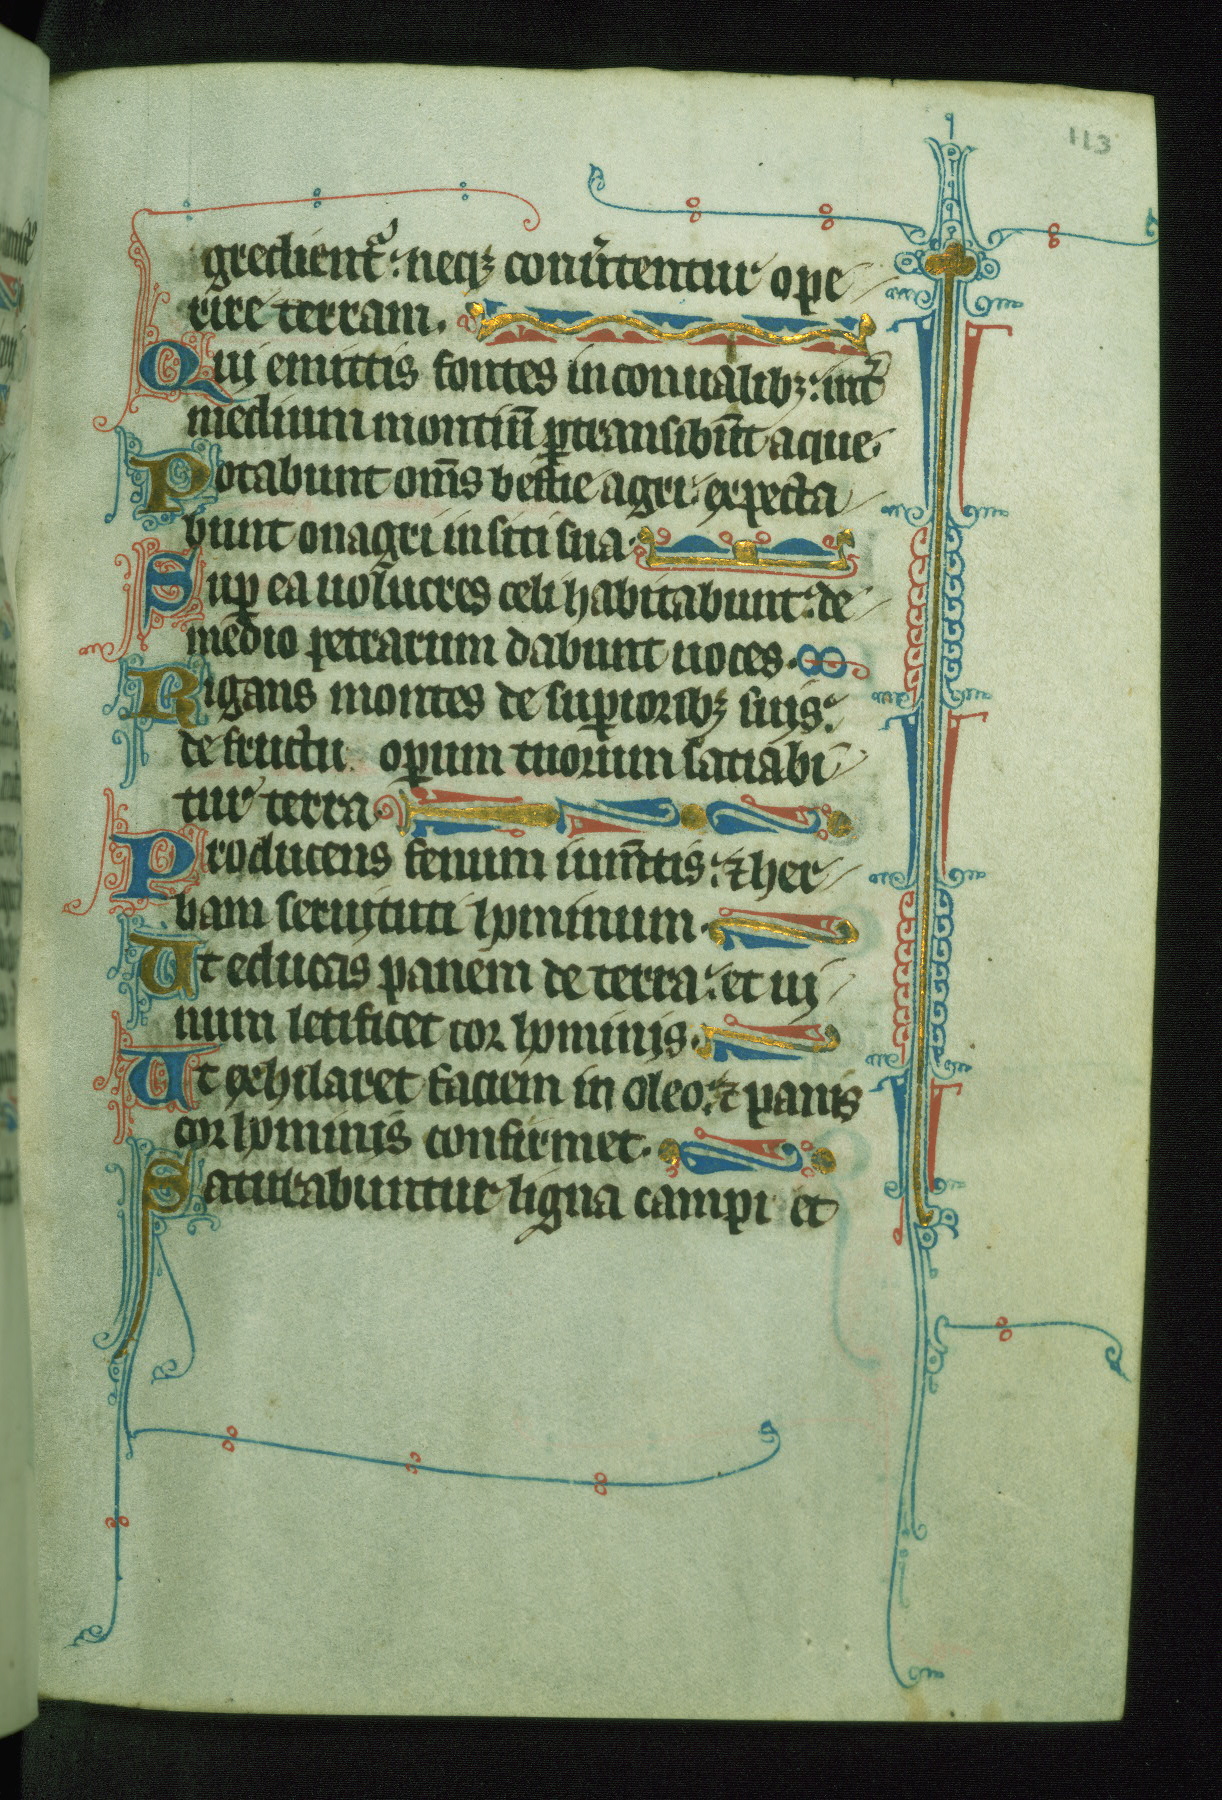 113
gredient᷑: neq₃ conũtentur ope
rire terram.
Quj emittis fontes in conualib₃: int᷑
medium montiũ ꝑtransibũt aque.
Potabunt om̃s bestie agri: expecta
bunt onagri in siti sua.
Suꝑ ea uolucres celi habitabunt: de
medio petrarum dabunt uoces.
Rigans montes de suꝑiorib₃ suis:
de fructu oꝑum tuorum satiabi
tur terra
Producens fenum ium̃tis: ⁊ her
bam seruituti hominum.
Ut educas panem de terra: et uj
num letificet cor hominis.
Ut exhilaret faciem in oleo: ⁊ panis
cor hominis confirmet.
Saturabuntur ligna campi et